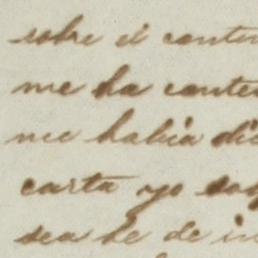 sobre el conten
me ha conte
me habia dic
carta yo
sea he de in